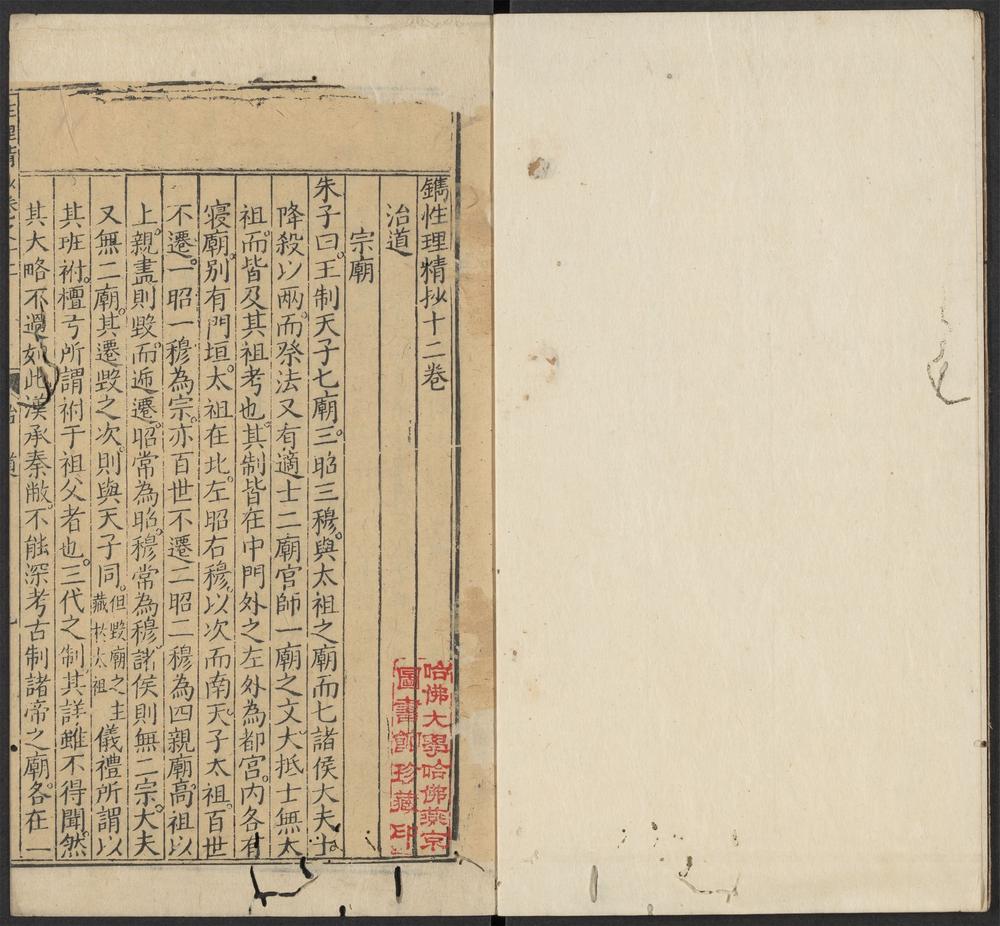 鐫性理精抄十二卷
治道
宗廟
朱子曰王制天子七廟三昭三穆與太祖之廟而七諸侯大夫士
降殺以兩而祭法又有適士二廟官師一廟之文大抵士無太
祖而皆及其祖考也其制皆在中門外之左外為都宮內各有
寢廟別有門垣太祖在北左昭右穆以次而南天子太祖百世
不遷一昭一穆為宗亦百世不遷二昭二穆為四親廟高祖以
上親盡則毀而遞遷昭常為昭穆常為穆諸侯則無二宗大夫
又無二廟其遷毀之次則與天子同但毀廟之主藏於太祖儀禮所謂以
其班祔檀弓所謂祔于祖父者也三代之制其詳雖不得聞然
其大略不過如此漢承秦敝不能深考古制諸帝之廟各在一
治道
哈佛大學哈佛燕京
圖書館珍藏印